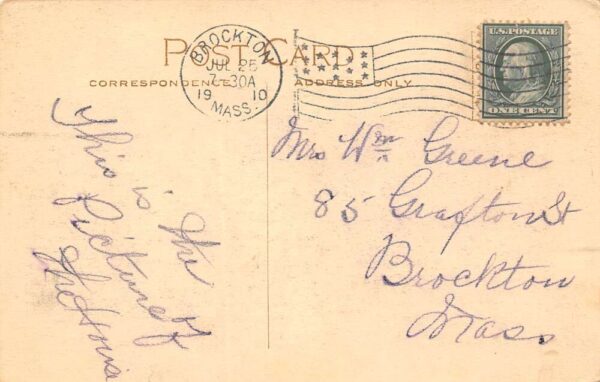 POST CARD
CORRESPONDENCE
ADDRESS ONLY
BROCKTON
JUL 25
7-30A
1910
MASS.
U.S. POSTAGE
ONE CENT
This is the
Picture of
the House
Mrs Wm Greene
85 Grafton St
Brockton
Mass